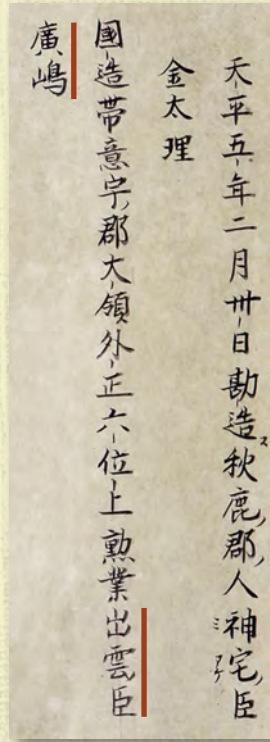 天平五年二月卅日勘造ス秋鹿郡人神宅臣ミヤケ
金太理
國造帯意宇郡大領外正六位上勲業出雲臣
廣嶋